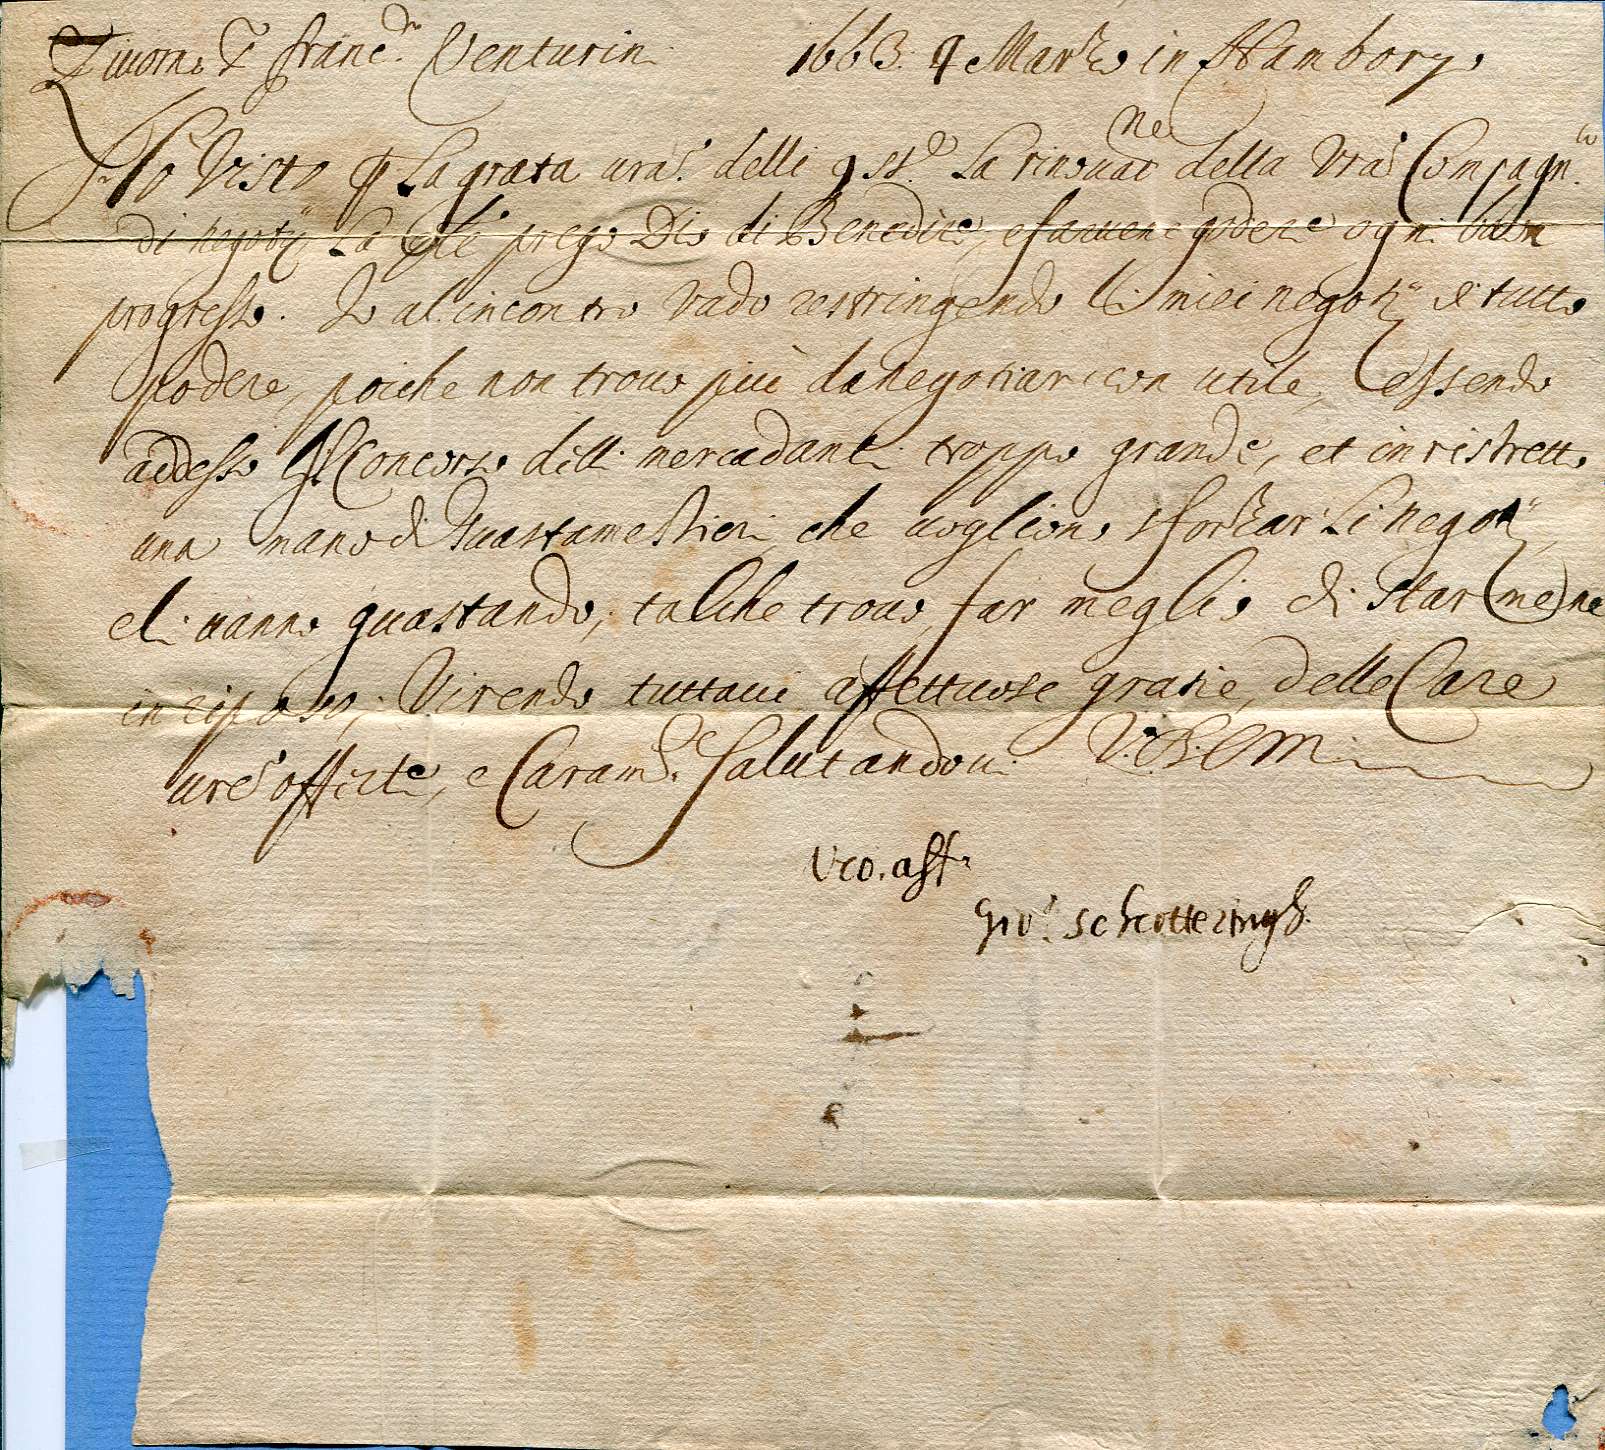 Liuorno Franc.º Venturin 1663. 9 Marzo in Hamborgo
Hò Visto p La grata ura. delli 9 st.º La rinouat.ne della Vra Compagn.ia
di negotÿ, La qle prego Dio di Benedire, e faruene godere ogni buon
progresso. Io al incontro Vado restringendo li miei negotÿ á tutto
podere, poiche non trouo più da negotiar con utile, essendo
addesso Il Concorso delli mercadanti troppo grande, et in ristretto
una mano di Guastamestieri, che uogliono sforzar Li negotÿ,
e li uanno guastando, talche trouo far meglio di starmene
in riposo, Virendo tuttaui affettuose gratie, delle Care
ure offerte, e Caram.te Salutandoui V.B.L.M.
Vro. aff.
Gio. Schotteringh.